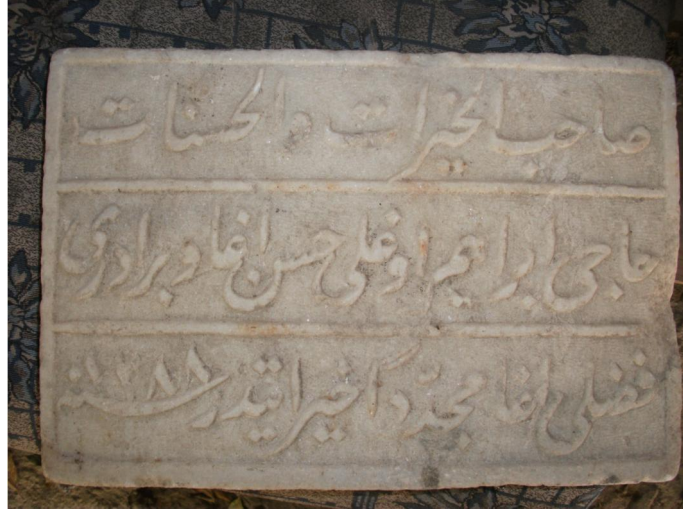 صاحب الخيرات والحسنات
حاجى ابراهيم اوغلى حسن اغا و برادرى
فضلى اغا مجدّداً خير ايتديلر سنه ١٢٨٨